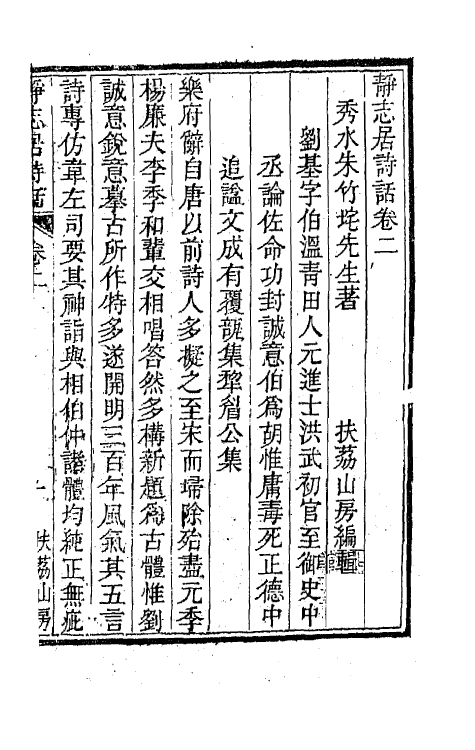 靜志居詩話卷二
秀水朱竹垞先生著　扶荔山房編輯
劉基字伯溫青田人元進士洪武初官至御史中
丞論佐命功封誠意伯爲胡惟庸毒死正德中
追諡文成有覆瓿集犂眉公集
樂府辭自唐以前詩人多擬之至宋而埽除殆盡元季
楊廉夫李季和輩交相唱答然多構新題爲古體惟劉
誠意銳意摹古所作特多遂開明三百年風氣其五言
詩專仿韋左司要其神詣與相伯仲諸體均純正無疵
靜志居詩話　卷二　一　扶荔山房